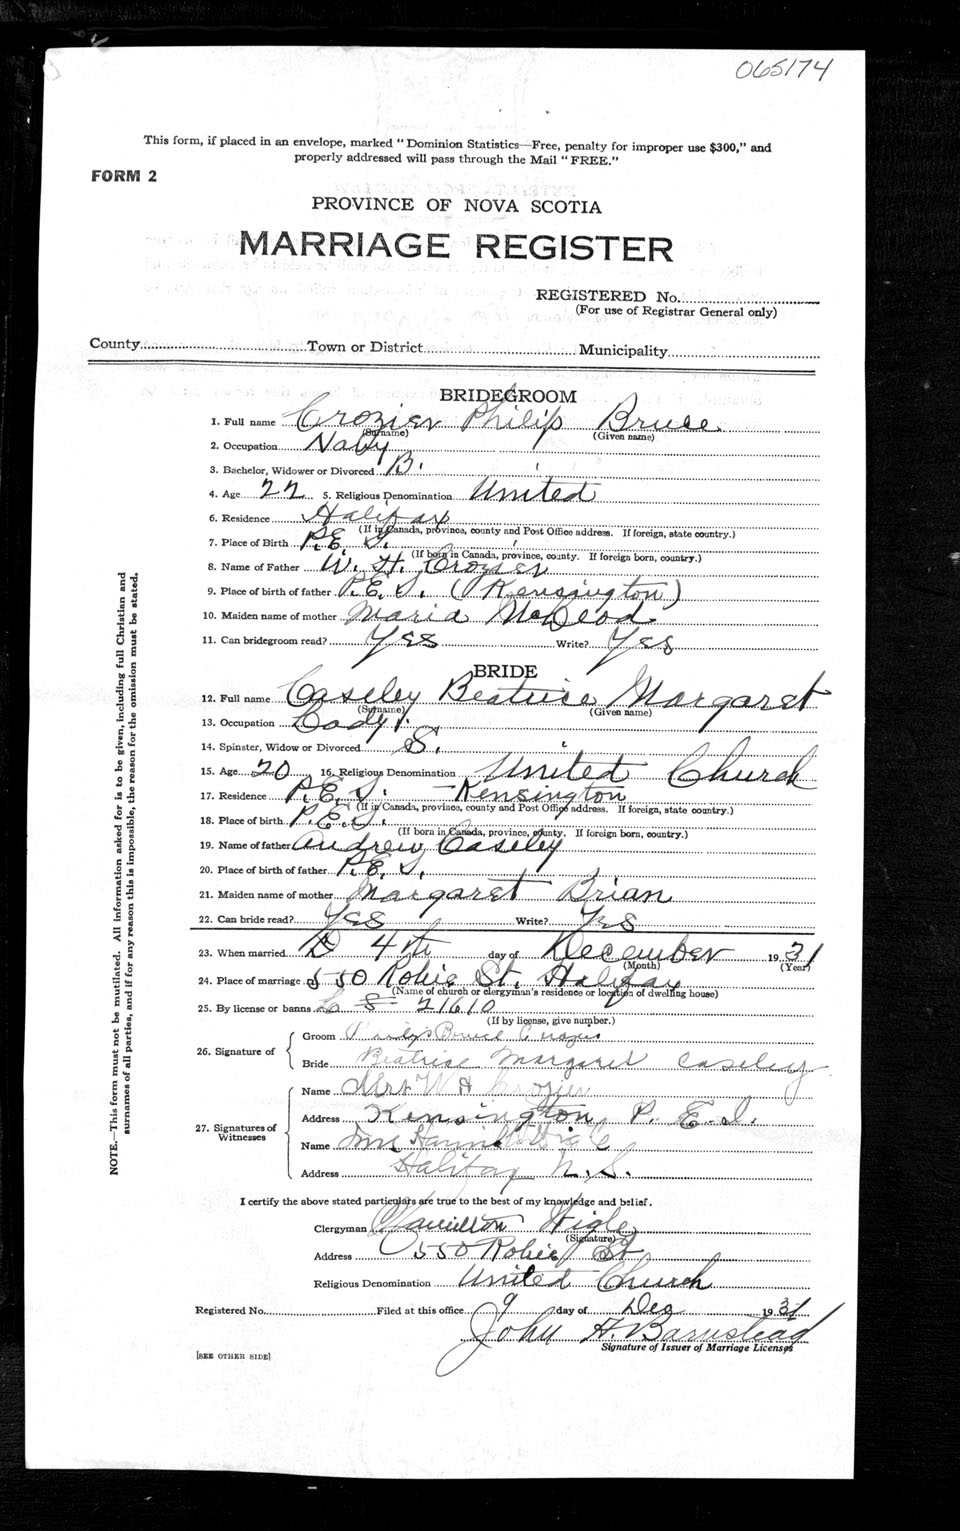 065174
This form, if placed in an envelope, marked "Dominion Statistics—Free, penalty for improper use $300," and
properly addressed will pass through the Mail "FREE."
FORM 2
PROVINCE OF NOVA SCOTIA
MARRIAGE REGISTER
REGISTERED No.
(For use of Registrar General only)
County Town or District Municipality
BRIDEGROOM
1. Full name Crozier Philip Bruce
(Surname) (Given name)
2. Occupation Navy
3. Bachelor, Widower or Divorced B.
4. Age 22 5. Religious Denomination United
6. Residence Halifax
(If in Canada, province, county and Post Office address. If foreign, state country.)
7. Place of Birth P.E.I.
(If born in Canada, province, county. If foreign born, country.)
8. Name of Father W. H. Crozier
9. Place of birth of father P.E.I. (Kensington)
10. Maiden name of mother Maria McLeod
11. Can bridegroom read? Yes Write? Yes
BRIDE
12. Full name Caseley Beatrice Margaret
(Surname) (Given name)
13. Occupation Lady
14. Spinster, Widow or Divorced S.
15. Age 20 16. Religious Denomination United Church
17. Residence P.E.I. — Kensington
(If in Canada, province, county and Post Office address. If foreign, state country.)
18. Place of birth P.E.I.
(If born in Canada, province, county. If foreign born, country.)
19. Name of father Andrew Caseley
20. Place of birth of father P.E.I.
21. Maiden name of mother Margaret Brian
22. Can bride read? Yes Write? Yes
23. When married 4th day of December 1931
(Month) (Year)
24. Place of marriage 550 Robie St. Halifax
(Name of church or clergyman's residence or location of dwelling house)
25. By license or banns L 8 21610
(If by license, give number.)
26. Signature of
Groom Philip Bruce Crozier
Bride Beatrice Margaret Caseley
27. Signatures of Witnesses
Name Mrs W H Crozier
Address Kensington, P. E. I.
Name Mrs Hamilton Wigle
Address Halifax N.S.
I certify the above stated particulars are true to the best of my knowledge and belief.
Clergyman Hamilton Wigle
(Signature)
Address 550 Robie St
Religious Denomination United Church
Registered No. Filed at this office 9 day of Dec 1931
John H. Barnstead
Signature of Issuer of Marriage Licenses
[SEE OTHER SIDE]
NOTE.—This form must not be mutilated. All information asked for is to be given, including full Christian and
surnames of all parties, and if for any reason this is impossible, the reason for the omission must be stated.